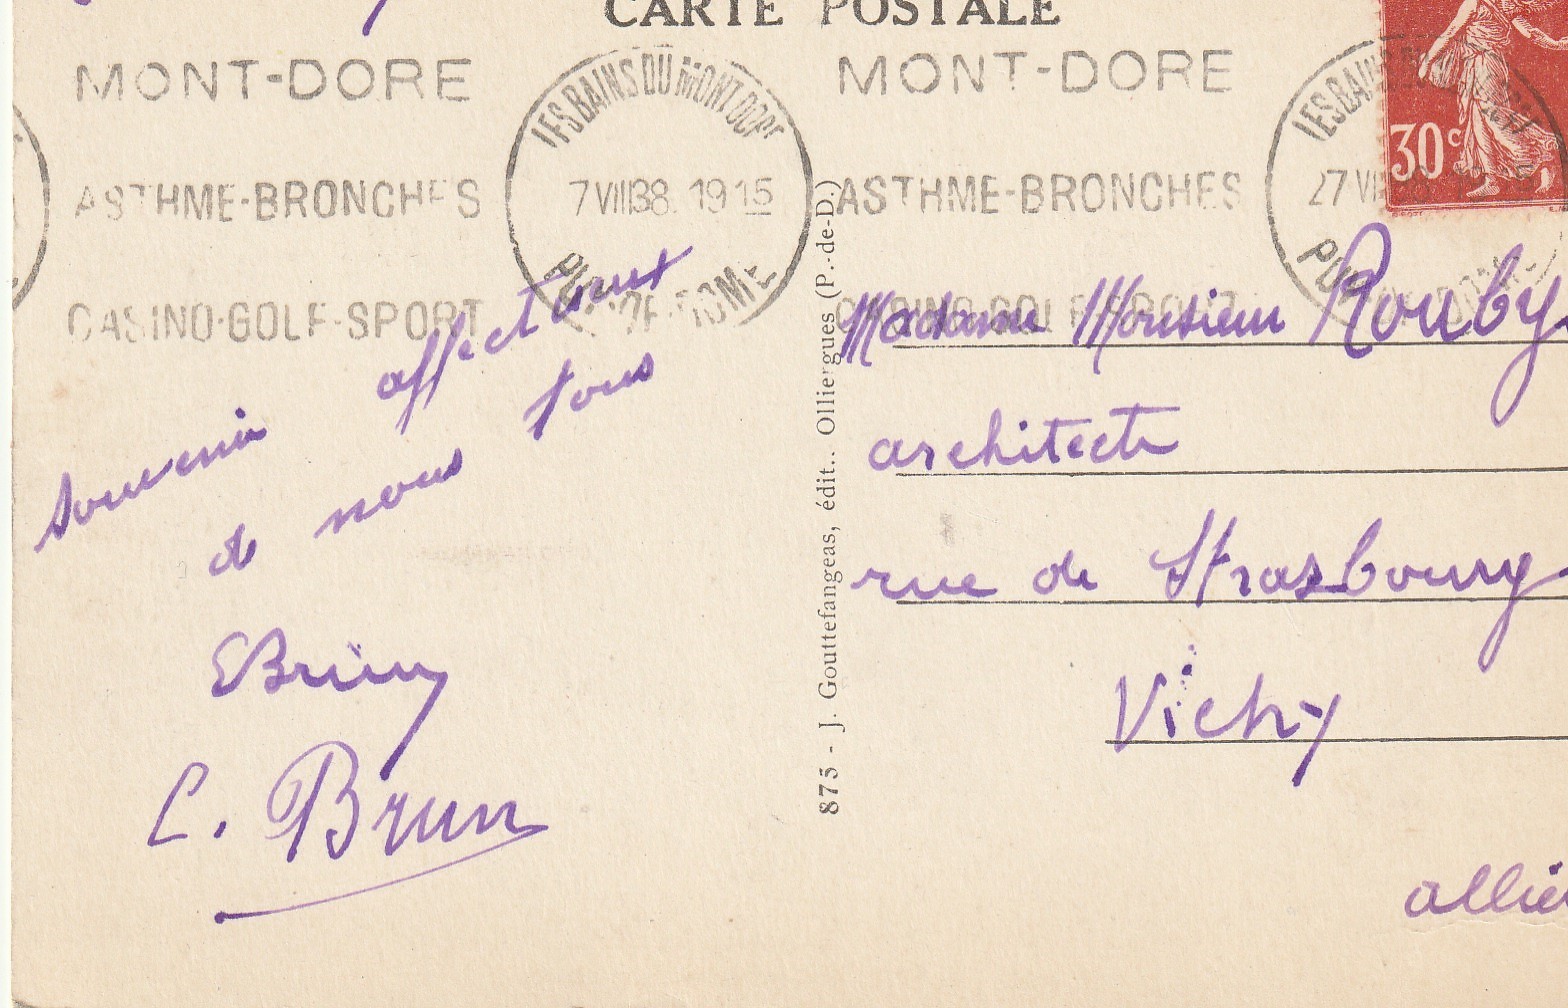 CARTE POSTALE
MONT-DORE
ASTHME-BRONCHES
CASINO-GOLF-SPORT
LES BAINS DU MONT DORE
7 VIII 38. 19 15
PUY DE DOME
MONT-DORE
ASTHME-BRONCHES
30c
souvenir affectueux
de nous tous
C. Brun
875 - J. Gouttefangeas, édit.. Olliergues (P.-de-D.)
Madame Monsieur Rouby
architecte
rue de Strasbourg
Vichy
allier